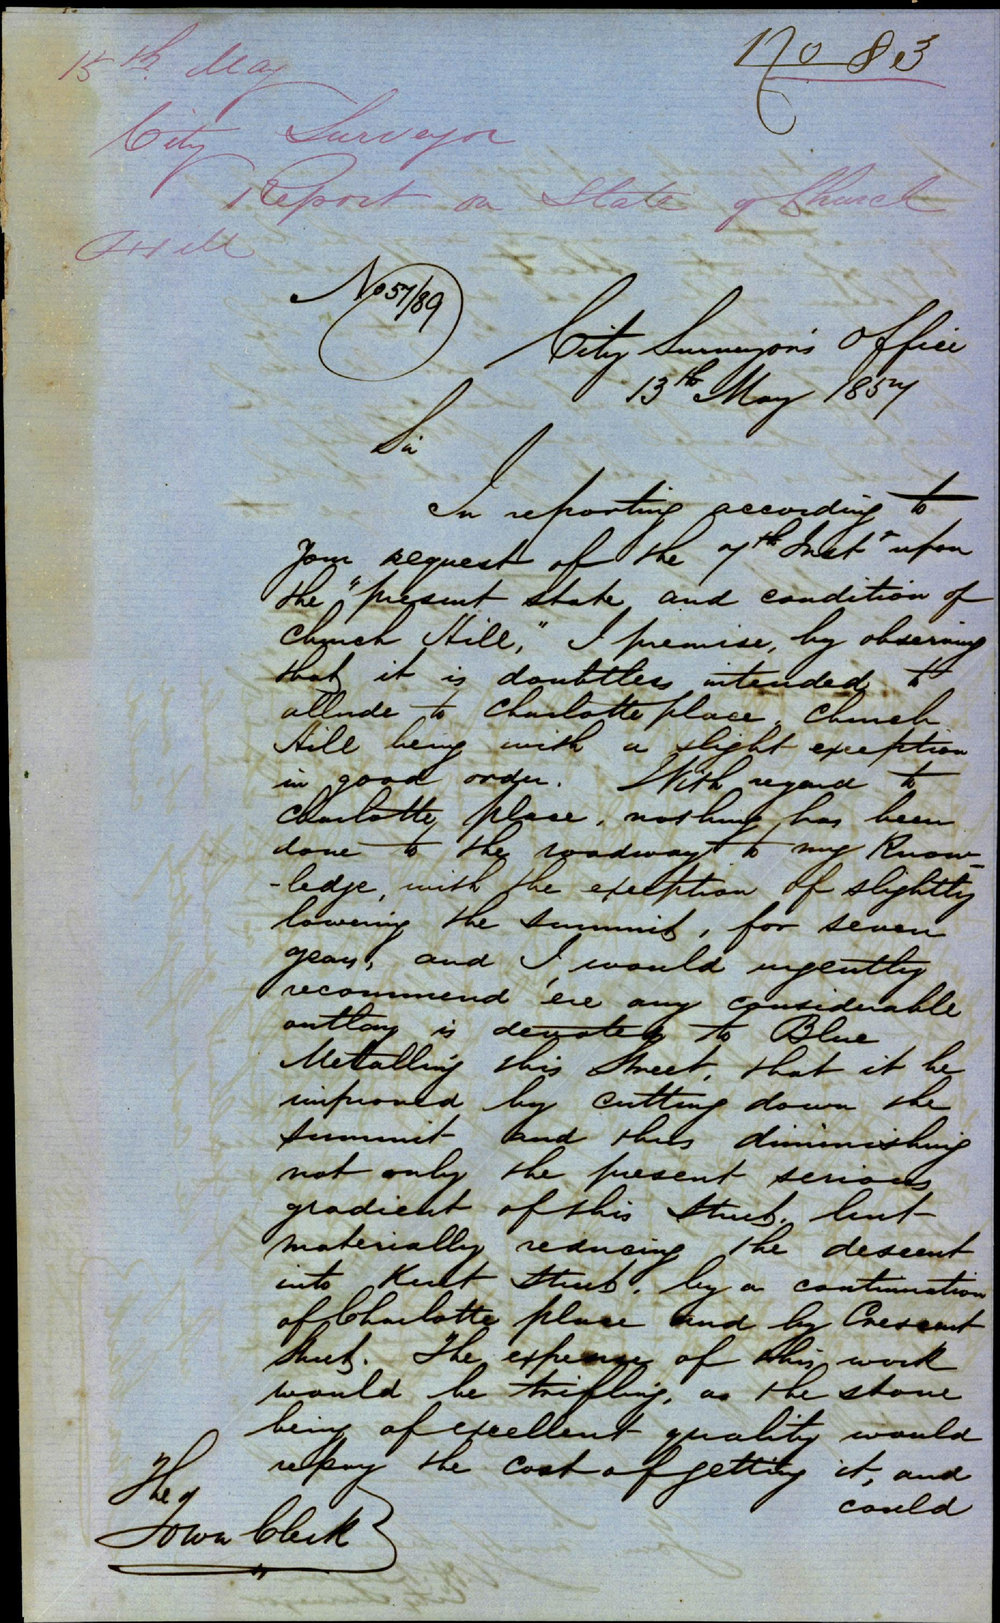 No 83
15th May
City Surveyor
Report on State of Church
Hill
No 57/89
City Surveyor's Office
13th May 1857
Sir
In reporting according to
Your request of the 7th Inst upon
the "present state and condition of
Church Hill," I premise, by observing
that it is doubtless intended to
allude to Charlotte place, Church
Hill being with a slight exception
in good order. With regard to
Charlotte place, nothing has been
done to the roadway to my Know-
-ledge, with the exception of slightly
lowering the summit, for seven
years, and I would urgently
recommend 'ere any considerable
outlay is devoted to Blue
Metalling this Street, that it be
improved by cutting down the
summit and thus diminishing
not only the present serious
gradient of this Street, but
materially reducing the descent
into Kent Street, by a continuation
of Charlotte place and by Crescent
Street. The expense of this work
would be trifling, as the stone
being of excellent quality would
repay the cost of getting it, and
could
The
Town Clerk